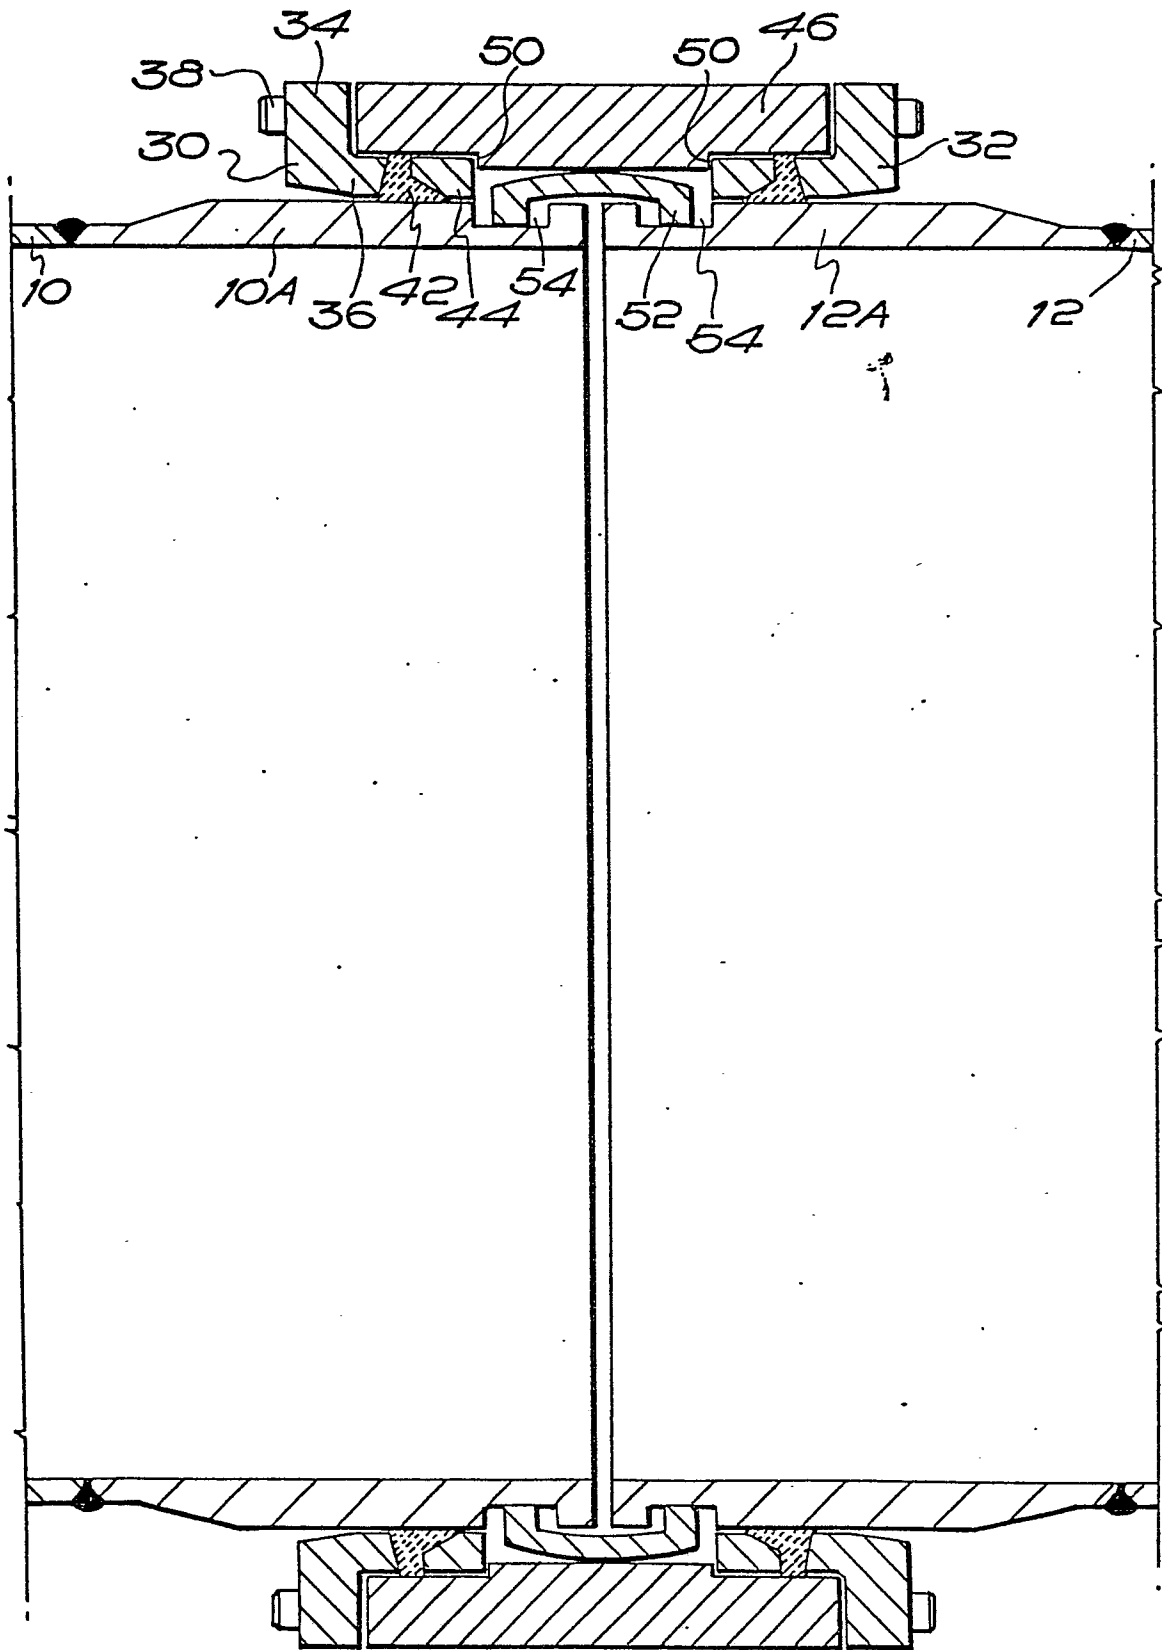 34
46
50
50
38
30
32
10
10A
36
42
44
54
52
54
12A
12